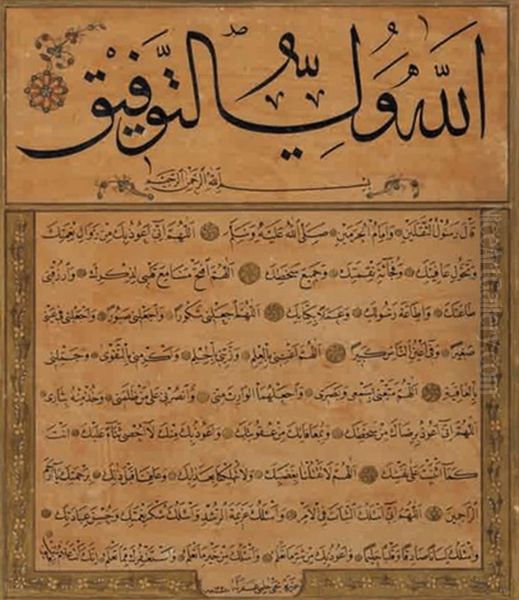 الله ولي التوفيق
بسم الله الرحمن الرحيم
قال رسول الثقلين وامام الحرمين صلى الله عليه وسلم اللهم اني اعوذ بك من زوال نعمتك
وتحول عافيتك وفجأة نقمتك وجميع سخطك اللهم افتح مسامع قلبي لذكرك وارزقني
طاعتك واطاعة رسولك وعملا بكتابك اللهم اجعلني شكورا واجعلني صبورا واجعلني في عيني
صغيرا وفي اعين الناس كبيرا اللهم اغنني بالعلم وزيني بالحلم واكرمني بالتقوى وجملني
بالعافية اللهم متعني بسمعي وبصري واجعلهما الوارث مني وانصرني على من ظلمني وخذ منه بثاري
اللهم اني اعوذ برضاك من سخطك وبمعافاتك من عقوبتك واعوذ بك منك لا احصي ثناء عليك انت
كما اثنيت على نفسك اللهم لا تقتلنا بغضبك ولا تهلكنا بعذابك وعافنا قبل ذلك برحمتك يا ارحم
الراحمين اللهم اني اسئلك الثبات في الامر واسئلك عزيمة الرشد واسئلك شكر نعمتك وحسن عبادتك
واسئلك لسانا صادقا وقلبا سليما واعوذ بك من شر ما تعلم واسئلك من خير ما تعلم واستغفرك مما تعلم انك انت علام الغيوب